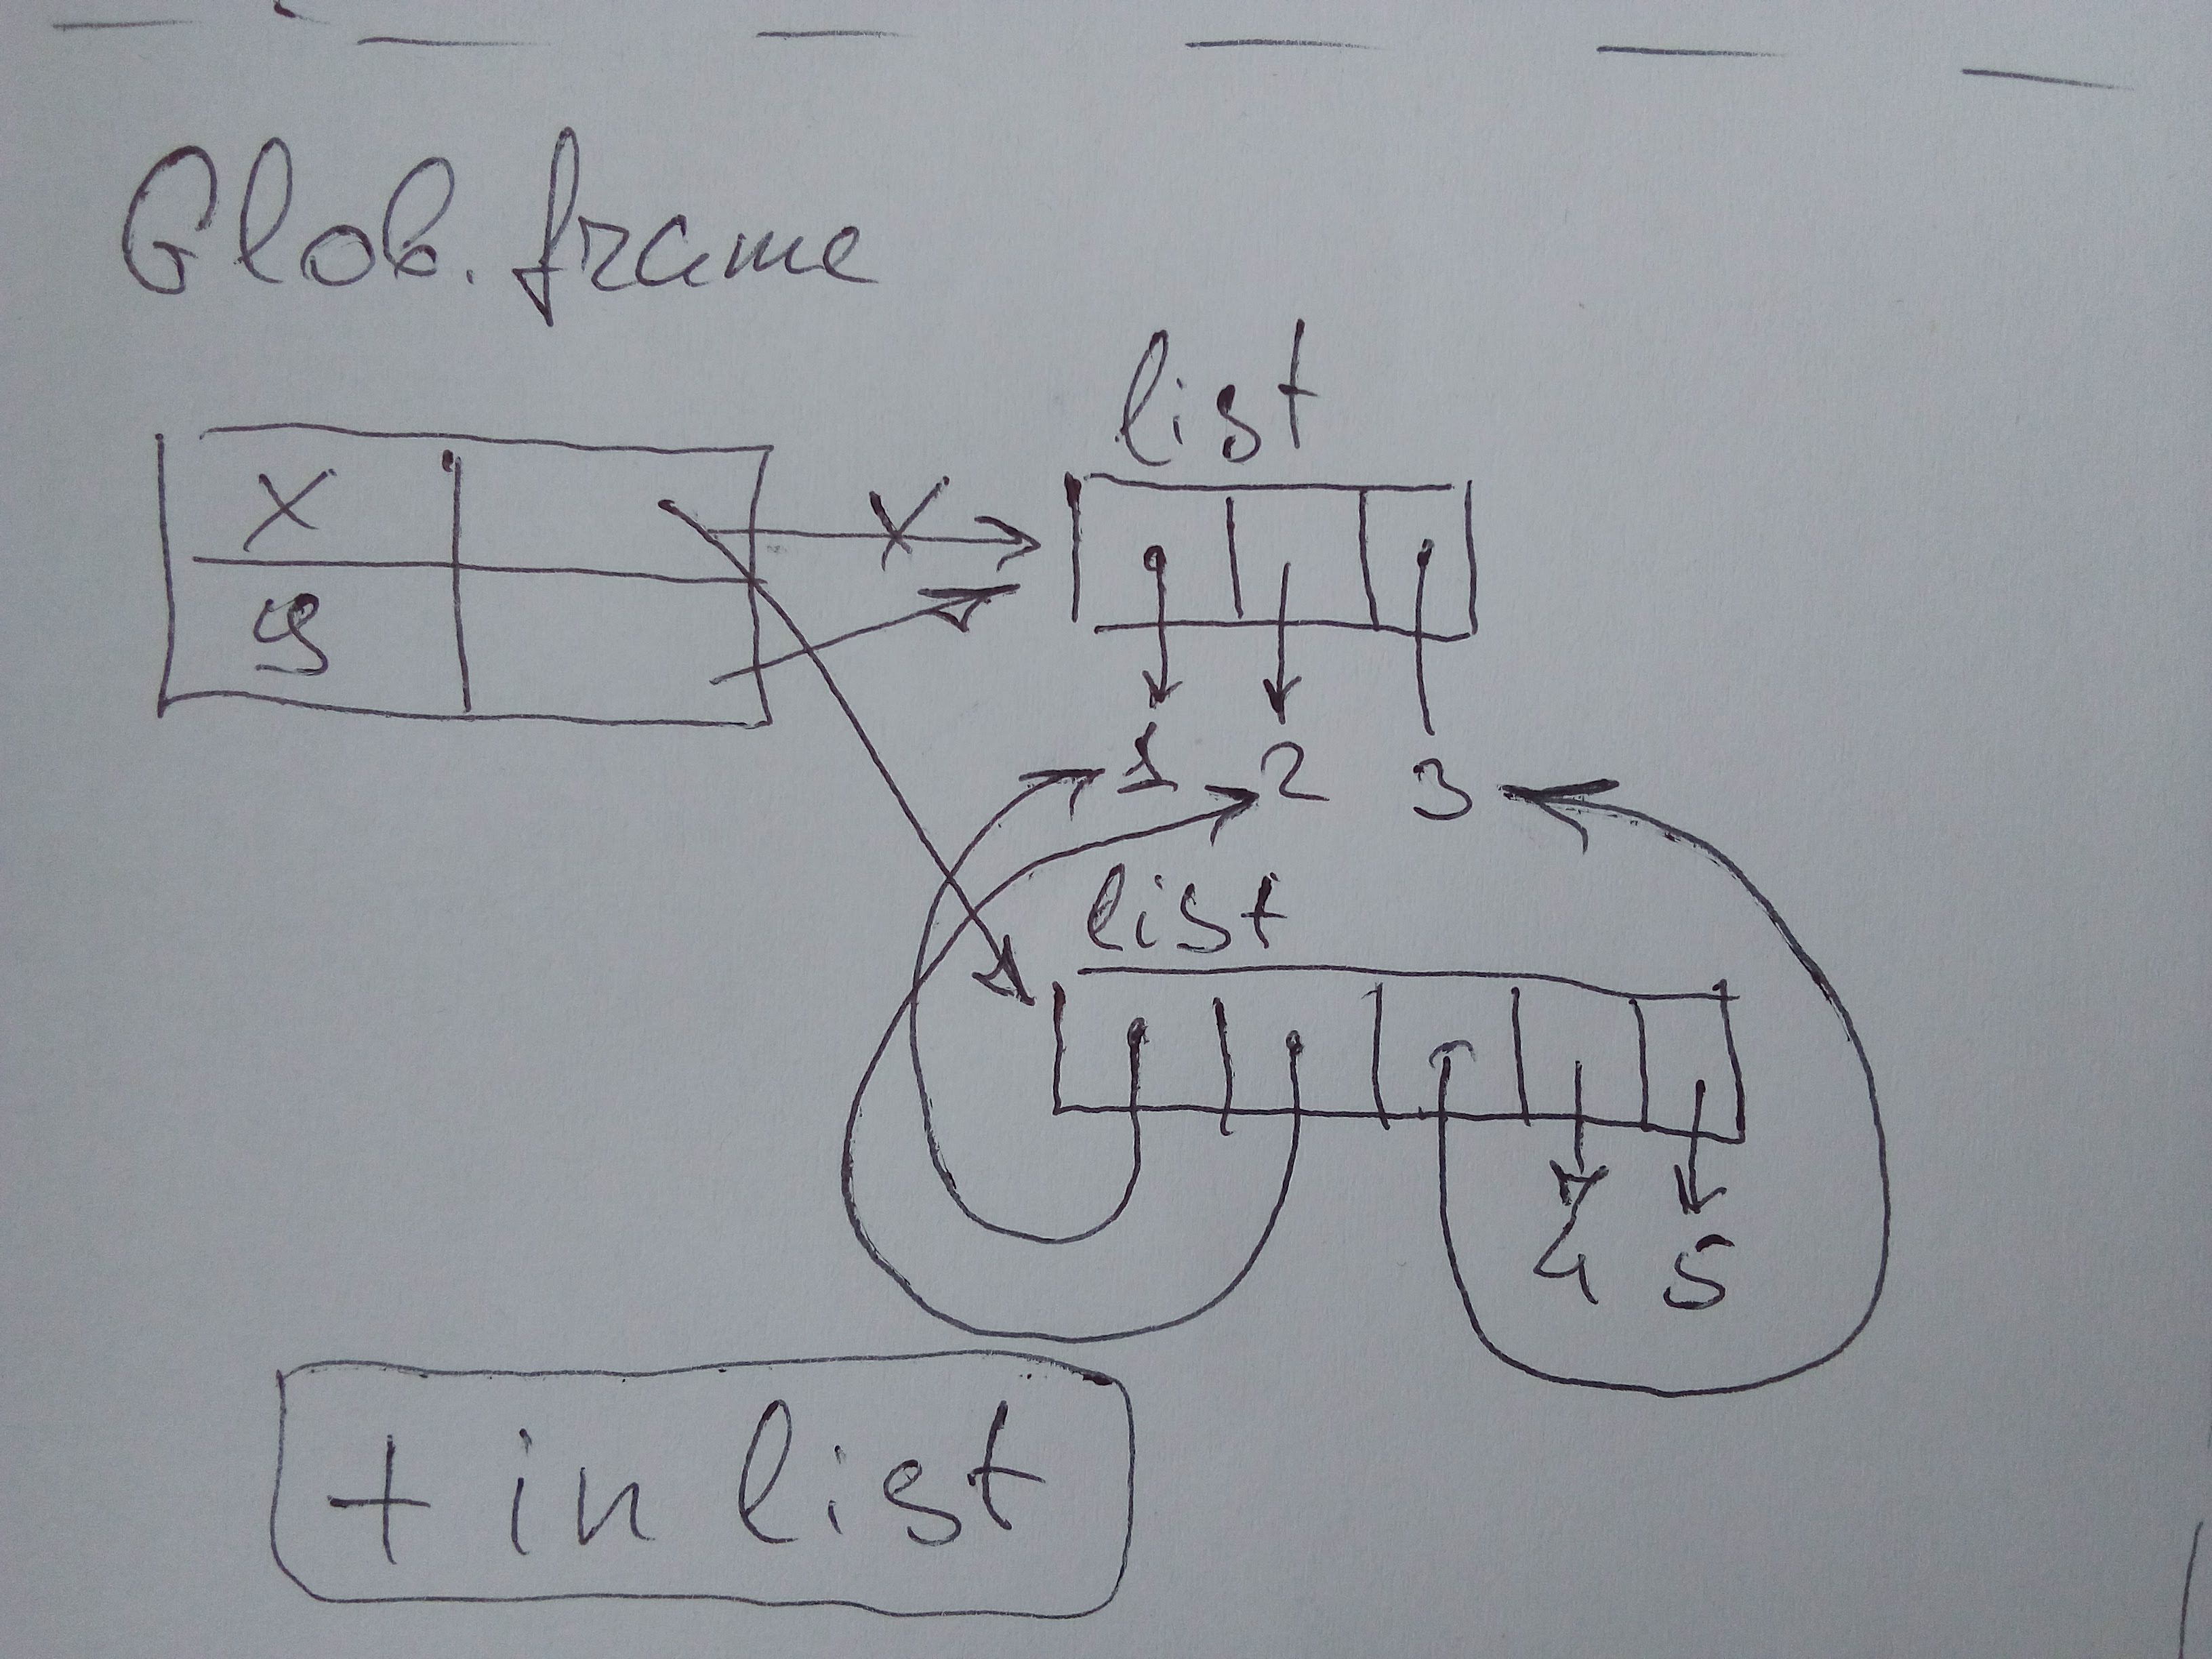 Glob. frame
list
x
y
1 2 3
list
4 5
+ in list